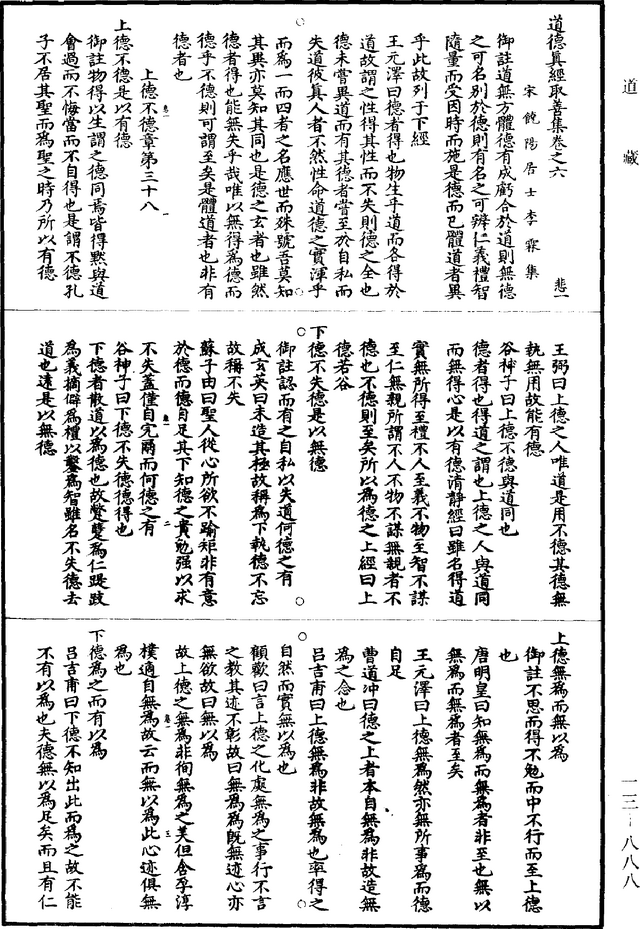 道藏
道德眞經取善集卷之六
悲一
宋饒陽居士李霖集
御註道無方體德有成虧合於道則無德
之可名別於德則有名之可辨仁義禮智
隨量而受因時而施是德而已體道者異
乎此故列于下經
王元澤曰德者得也物生乎道而各得於
道故謂之性得其性而不失則德之全也
德未嘗異道而有其德者嘗至於自私而
失道彼眞人者不然性命道德之實渾乎
而爲一而四者之名應世而殊號吾莫知
其異亦莫知其同也是德之玄者也雖然
德者得也能無失乎哉唯以無得爲德而
德乎不德則可謂至矣是體道者也非有
德者也
上德不德章第三十八
上德不德是以有德
御註物得以生謂之德同焉皆得默與道
會過而不悔當而不自得也是謂不德孔
子不居其聖而爲聖之時乃所以有德
王弼曰上德之人唯道是用不德其德無
執無用故能有德
谷神子曰上德不德與道同也
德者得也得道之謂也上德之人與道同
而無得心是以有德清靜經曰雖名得道
實無所得至禮不人至義不物至智不謀
至仁無親所謂不人不物不謀無親者不
德也不德則至矣所以爲德之上經曰上
德若谷
下德不失德是以無德
御註認而有之自私以失道何德之有
成玄英曰未造其極故稱爲下執德不忘
故稱不失
蘇子由曰聖人從心所欲不踰矩非有意
於德而德自足其下知德之貴勉强以求
不失蓋僅自完爾而何德之有
谷神子曰下德不失德德得也
下德者散道以爲德也故蹩躠爲仁踶跂
爲義摘僻爲禮以鑿爲智雖名不失德去
道也遠是以無德
上德無爲而無以爲
御註不思而得不勉而中不行而至上德
也
唐明皇曰知無爲而無爲者非至也無以
無爲而無爲者至矣
王元澤曰上德無爲然亦無所事爲而德
自足
曹道沖曰德之上者本自無爲非故造無
爲之念也
呂吉甫曰上德無爲非故無爲也率得之
自然而實無以爲也
顧歡曰言上德之化處無爲之事行不言
之教其迹不彰故曰無爲爲旣無迹心亦
無欲故曰無以爲
故上德之無爲非徇無爲之美但含孚淳
樸適自無爲故云而無以爲此心迹俱無
爲也
下德爲之而有以爲
呂吉甫曰下德不知出此而爲之故不能
不有以爲也夫德無以爲足矣而且有仁
一三—八八八